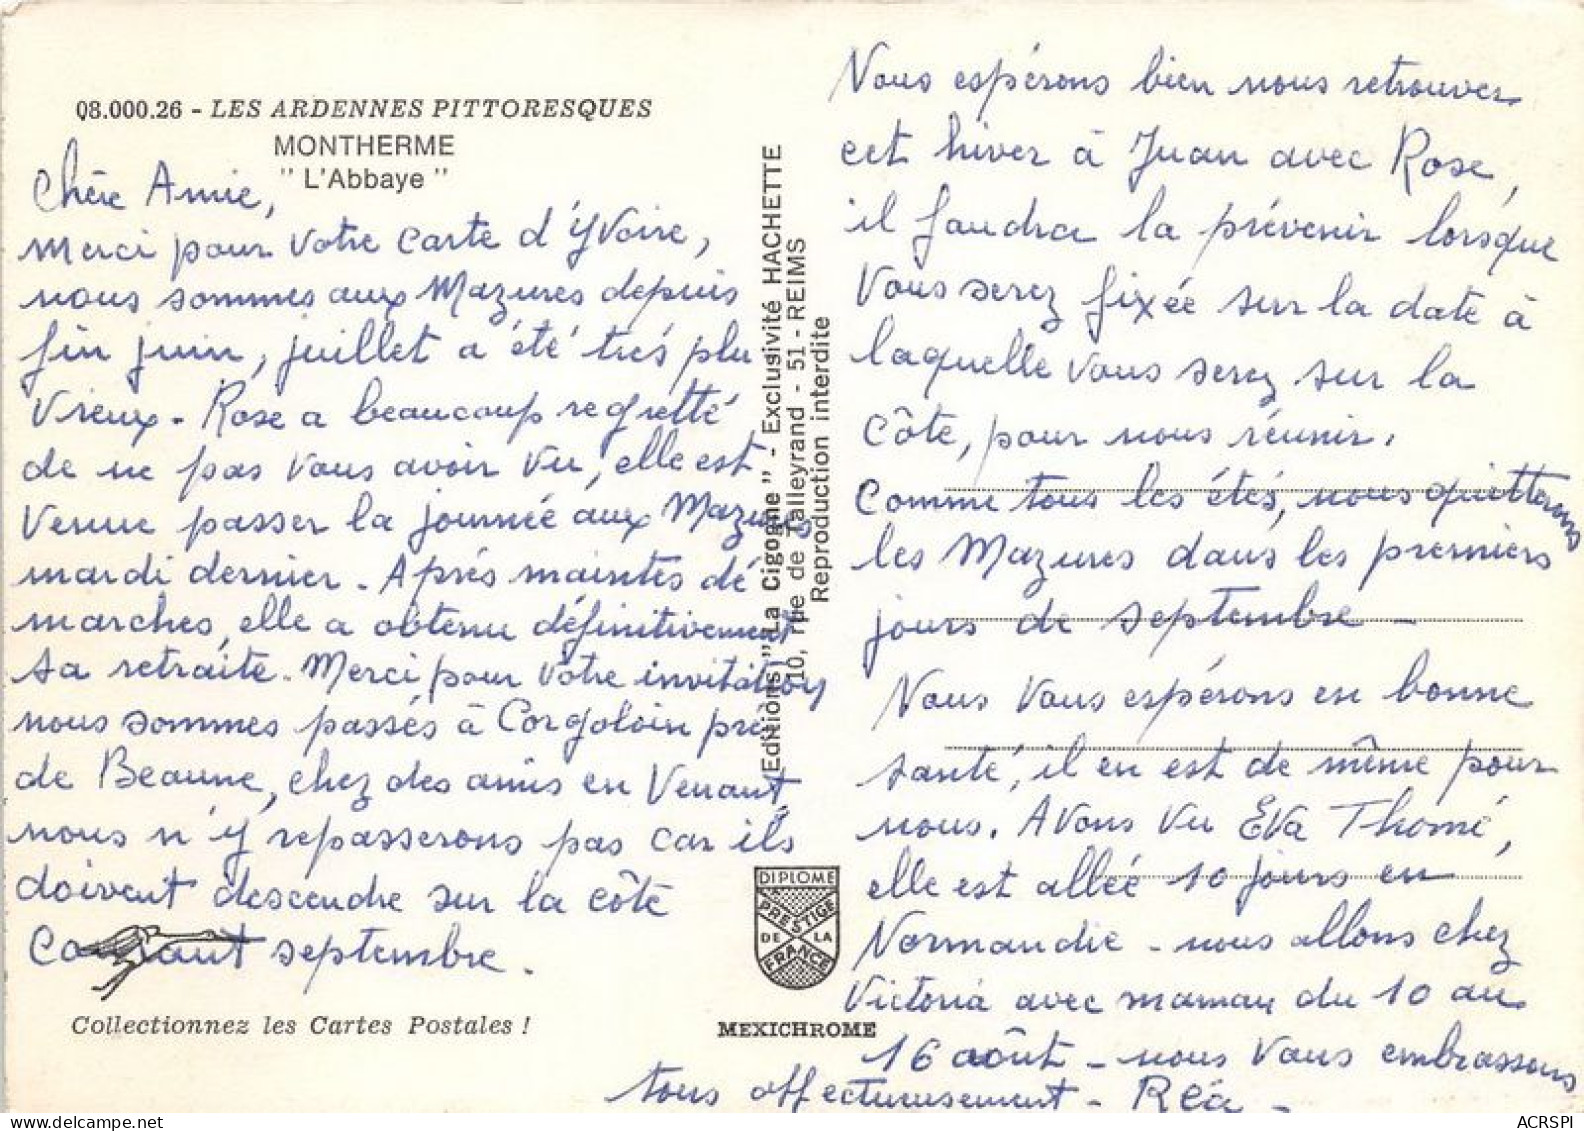 08.000.26 - LES ARDENNES PITTORESQUES
MONTHERME
" L'Abbaye "
Chère Amie,
Merci pour votre carte d'Yvoire,
nous sommes aux Mazures depuis
fin juin, juillet a été très plu
vieux. Rose a beaucoup regretté
de ne pas vous avoir vu, elle est
venue passer la journée aux Mazures
mardi dernier. Après maintes dé
marches, elle a obtenu définitivement
sa retraite. Merci pour votre invitation
nous sommes passés à Corgoloin près
de Beaune, chez des amis en venant,
nous n'y repasserons pas car ils
doivent descendre sur la côte
courant septembre.
Collectionnez les Cartes Postales !
Editions "La Cigogne" - Exclusivité HACHETTE
10, rue de Talleyrand - 51 - REIMS
Reproduction interdite
DIPLOME
PRESTIGE
DE LA
FRANCE
MEXICHROME
Nous espérons bien nous retrouver
cet hiver à Juan avec Rose,
il faudra la prévenir lorsque
vous serez fixée sur la date à
laquelle vous serez sur la
côte, pour nous réunir.
Comme tous les étés, nous quitterons
les Mazures dans les premiers
jours de septembre -
Nous vous espérons en bonne
santé, il en est de même pour
nous. Avons vu Eva Thomé,
elle est allée 10 jours en
Normandie - nous allons chez
Victoria avec maman du 10 au
16 août - nous vous embrassons
tous affectueusement - Réa -
ACRSPI